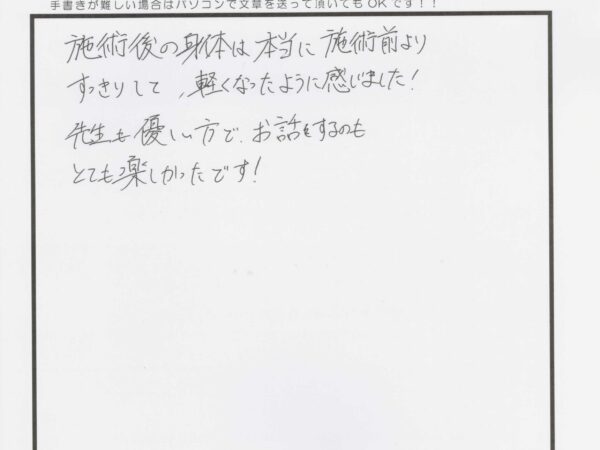 手書きが難しい場合はパソコンで文章を送って頂いてもOKです！！
施術後の身体は本当に施術前より
すっきりして、軽くなったように感じました！
先生も優しい方で、お話をするのも
とても楽しかったです！